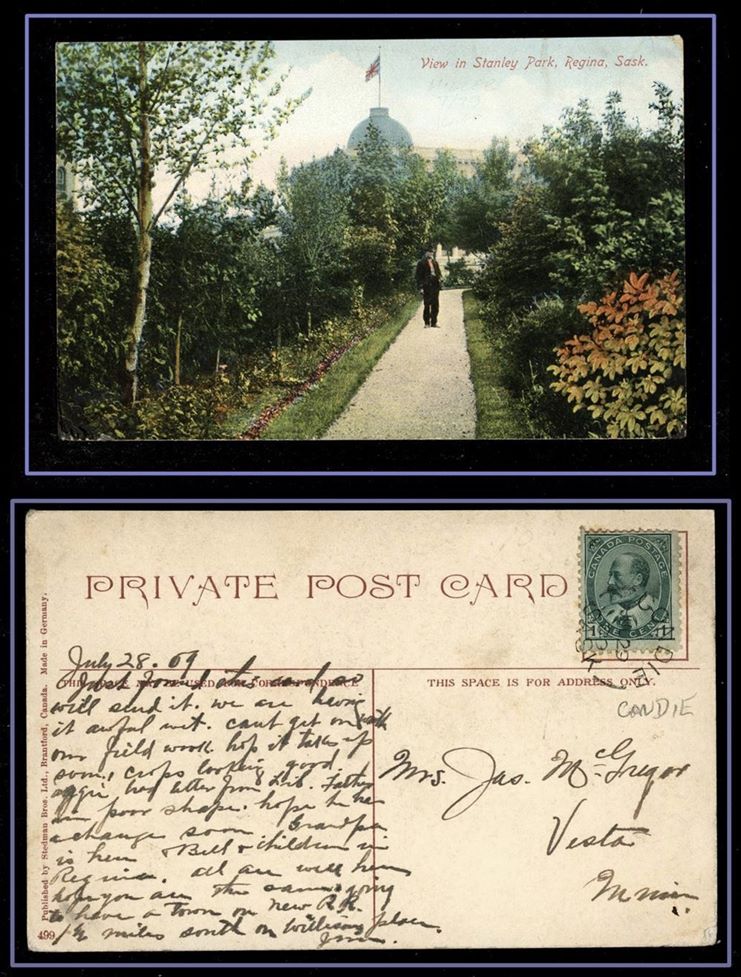 View in Stanley Park, Regina, Sask.
PRIVATE POST CARD
CANADA POSTAGE
ONE CENT
1 1
CANDIE
JY 29
SASK
July 28. 09
THIS SPACE MAY BE USED FOR CORRESPONDENCE
THIS SPACE IS FOR ADDRESS ONLY.
CANDIE
Just found
will send it. we are having
it awful wet. cant get on with
our field work hop it
soon, crops looking good,
had letter from Lib. Father
in poor shape. hope he has
a change soon Grandpa
is here Bill + children in
Regina. all are well here
hope you are the same going
to have a town on new R.R.
1½ miles south on place.
Jim.
Mrs. Jas. McGregor
Vesta
Minn.
Published by Stedman Bros. Ltd., Brantford, Canada. Made in Germany.
499